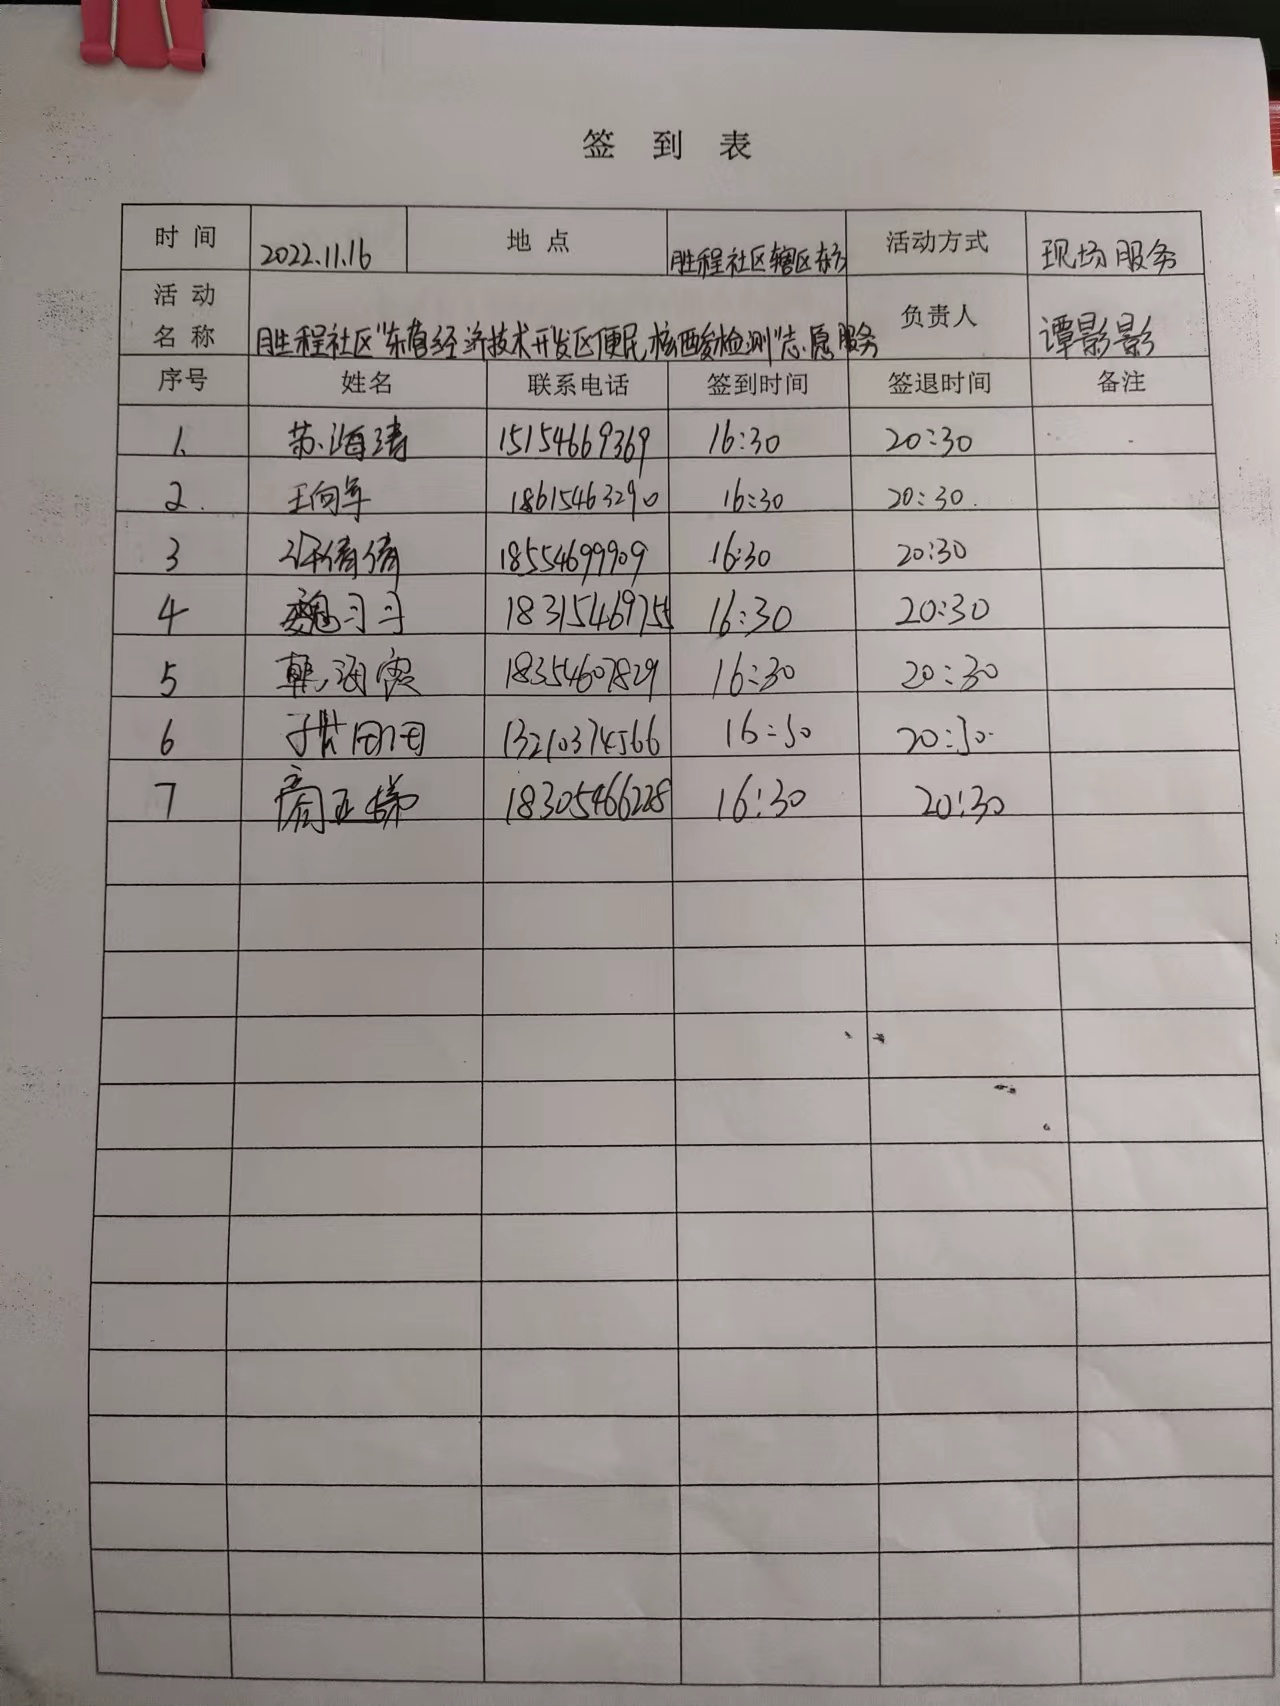 签 到 表
时 间 2022.11.16 地 点 胜程社区辖区东方 活动方式 现场服务
活 动
名 称 胜程社区"东营经济技术开发区便民核酸检测"志愿服务 负责人 谭影影
序号 姓名 联系电话 签到时间 签退时间 备注
1. 苏海清 15154669369 16:30 20:30
2. 王向军 18615463290 16:30 20:30.
3 倩倩 18554699909 16:30 20:30
4 魏习习 18315469755 16:30 20:30
5 韩海霞 18354607829 16:30 20:30
6 13210374566 16:30 20:30
7 商亚梯 18305466228 16:30 20:30